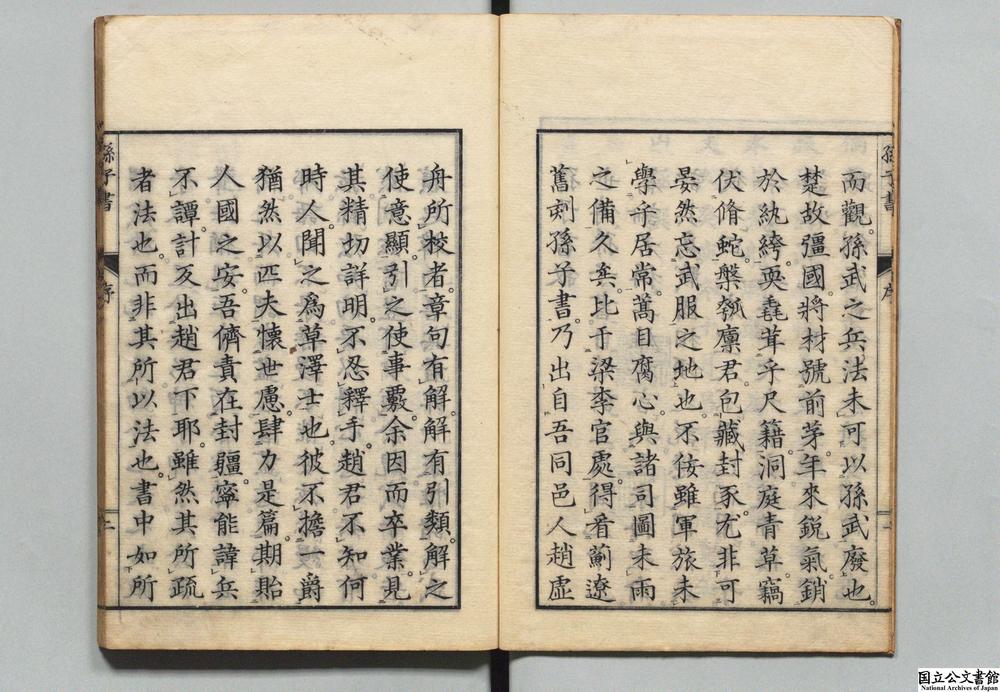 孫子書
序
一
而觀。孫武之兵法。未可以孫武廢也。
楚故彊國。將材號前茅。年來銳氣。銷
於紈綺。耎毳茸乎尺籍。洞庭青草。竊
伏脩蛇。槃瓠廩君。包藏封豕。尤非可
晏然忘武服之地也。不佞雖軍旅未
學。乎居常。蒿目腐心。與諸司圖未雨
之備久矣。比于梁李官處。得看薊遼
舊刻孫子書。乃出自吾同邑人趙虛
舟所校者。章句有解。解有引類。解之
使意顯。引之使事覈。余因而卒業。見
其精切詳明。不忍釋手。趙君不知何
時人。聞之爲草澤士也。彼不擔一爵
猶然以匹夫懷世慮。肆力是篇。期貽
人國之安。吾儕責在封疆。寧能諱兵
不譚。計反出趙君下耶。雖然其所疏
者法也。而非其所以法也。書中如所
孫子書
序
二
国立公文書館
National Archives of Japan